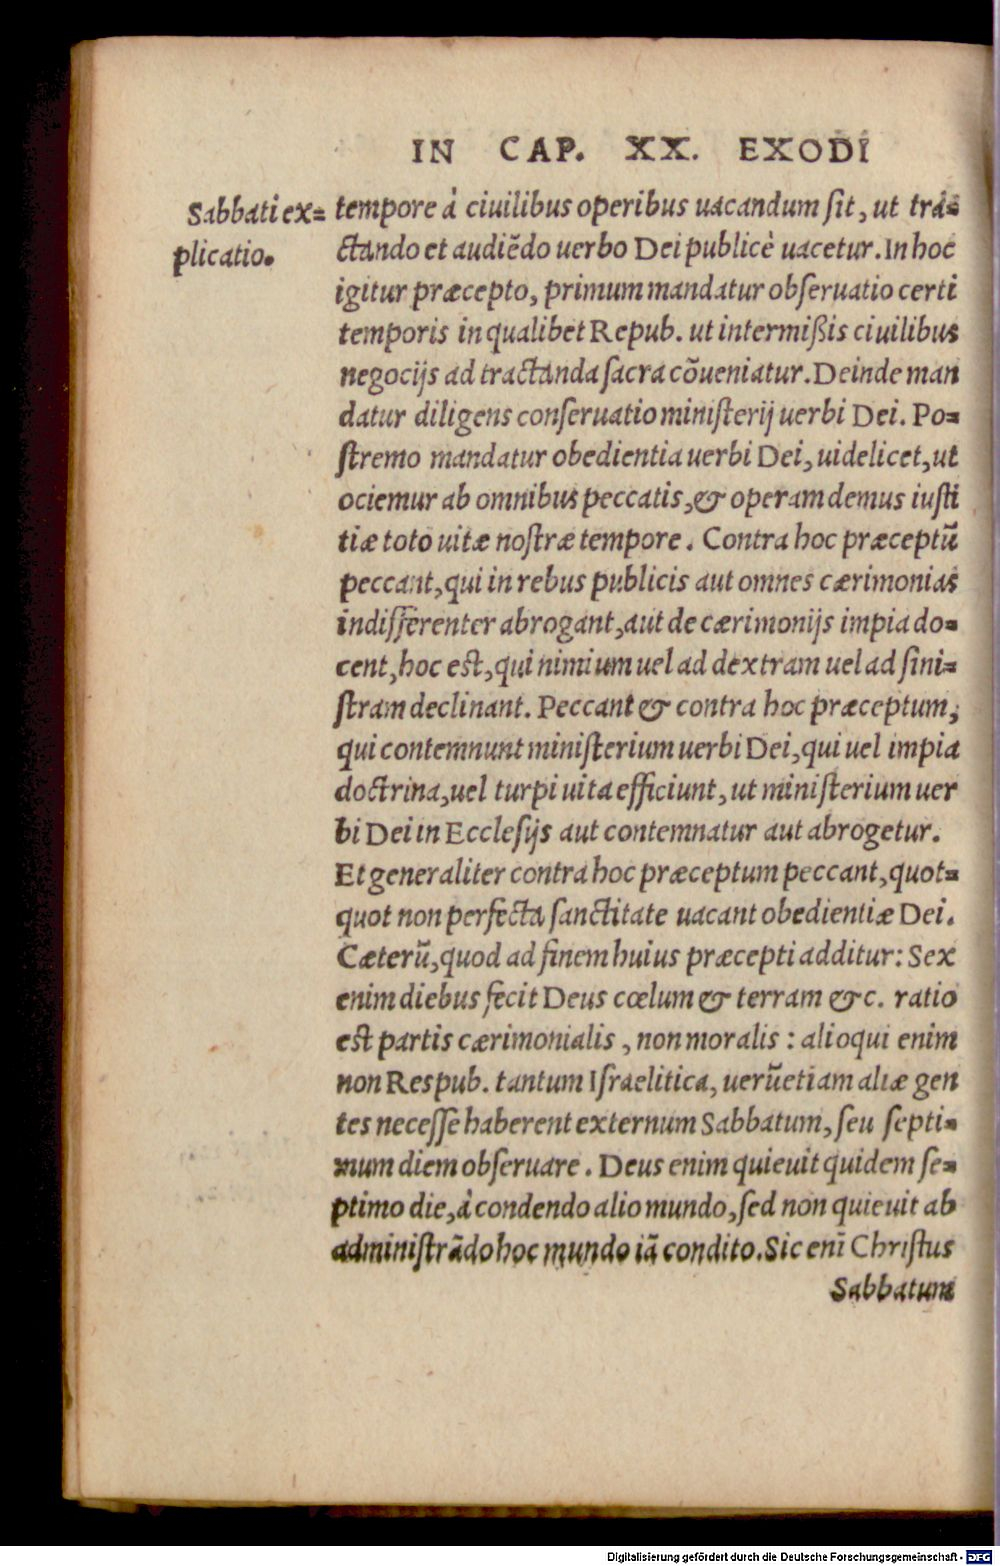 IN CAP. XX. EXODI
Sabbati ex=
plicatio.
tempore à ciuilibus operibus uacandum ſit, ut trá=
ctando et audiẽdo uerbo Dei publicè uacetur. In hoc
igitur præcepto, primum mandatur obſeruatio certi
temporis in qualibet Repub. ut intermißis ciuilibus
negocijs ad tractanda ſacra cõueniatur. Deinde man
datur diligens conſeruatio miniſterij uerbi Dei. Po=
ſtremo mandatur obedientia uerbi Dei, uidelicet, ut
ociemur ab omnibus peccatis, & operam demus iuſti
tiæ toto uitæ noſtræ tempore. Contra hoc præceptũ
peccant, qui in rebus publicis aut omnes cærimonias
indifferenter abrogant, aut de cærimonijs impia do=
cent, hoc eſt, qui nimium uel ad dextram uel ad ſini=
ſtram declinant. Peccant & contra hoc præceptum,
qui contemnunt miniſterium uerbi Dei, qui uel impia
doctrina, uel turpi uita efficiunt, ut miniſterium uer
bi Dei in Eccleſijs aut contemnatur aut abrogetur.
Et generaliter contra hoc præceptum peccant, quot=
quot non perfecta ſanctitate uacant obedientiæ Dei.
Cæterũ, quod ad finem huius præcepti additur: Sex
enim diebus fecit Deus cœlum & terram &c. ratio
eſt partis cærimonialis, non moralis: alioqui enim
non Reſpub. tantum Iſraelitica, uerũetiam aliæ gen
tes neceſſe haberent externum Sabbatum, ſeu ſepti=
mum diem obſeruare. Deus enim quieuit quidem ſe=
ptimo die, à condendo alio mundo, ſed non quieuit ab
adminiſtrãdo hoc mundo iã condito. Sic enĩ Chriſtus
Sabbatum
Digitalisierung gefördert durch die Deutsche Forschungsgemeinschaft - DFG